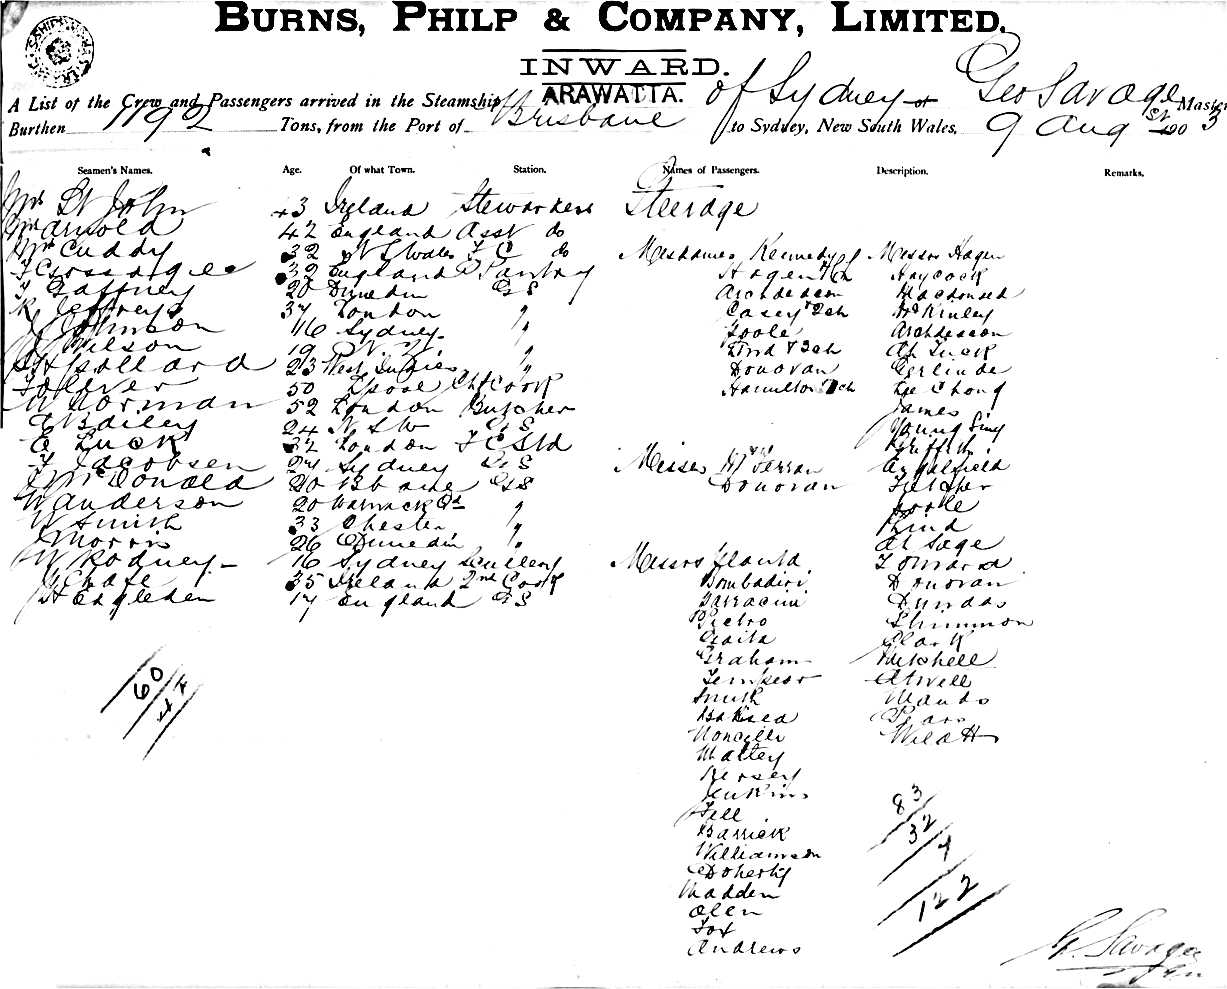 BURNS, PHILP & COMPANY, LIMITED.
INWARD.
A List of the Crew and Passengers arrived in the Steamship ARAWATTA. of Sydney Geo Savage Master
Burthen 1192 Tons, from the Port of Brisbane to Sydney, New South Wales, 9 Aug 1903
Seamen's Names. Age. Of what Town. Station. Names of Passengers. Description. Remarks.
Mrs St John 43 Ireland Stewardess
Mr Arnold 42 England Asst do
Mr Cuddy 32 N S Wales F C do
32 England Pantry
Gaffney 20 Dunedin GS
R Jeffreys 37 London "
Johnson 46 Sydney "
Wilson 19 "
Pollard 23 West Indies "
50 Lpool Ch Cook
W Norman 52 London Butcher
E Bailey 24 N S W GS
E Luck 32 London F C Std
F Jacobsen 27 Sydney GS
McDonald 20 Bbane GS
W Anderson 20 Warwick Qd "
W Smith 33 Chester "
Morris 26 Dunedin "
W Rodney 16 Sydney Scullery
35 Ireland 2nd Cook
17 England GS
60
Steerage
Mesdames Kennedy Messrs Hagen
Hagen & Ch Haycock
Archdeacon Macdonald
Casey & 2ch McKinley
Toole Archdeacon
Ah Luck
Donovan Gerlinde
Hamilton & ch Lee Chong
James
Young Sing
Griffith
Misses
Donovan Fletcher
Toole
Kind
Messrs
Bombadiri Donovan
Garracini Dundas
Pietro Shimmon
Clark
Graham Mitchell
Tempest Atwell
Smith Mands
Pears
Maltey
Kersey
Jenkins
Fell
Barrick
Williamson
Doherty
Madden
Olen
Fox
Andrews
83
32
7
122
G. Savage